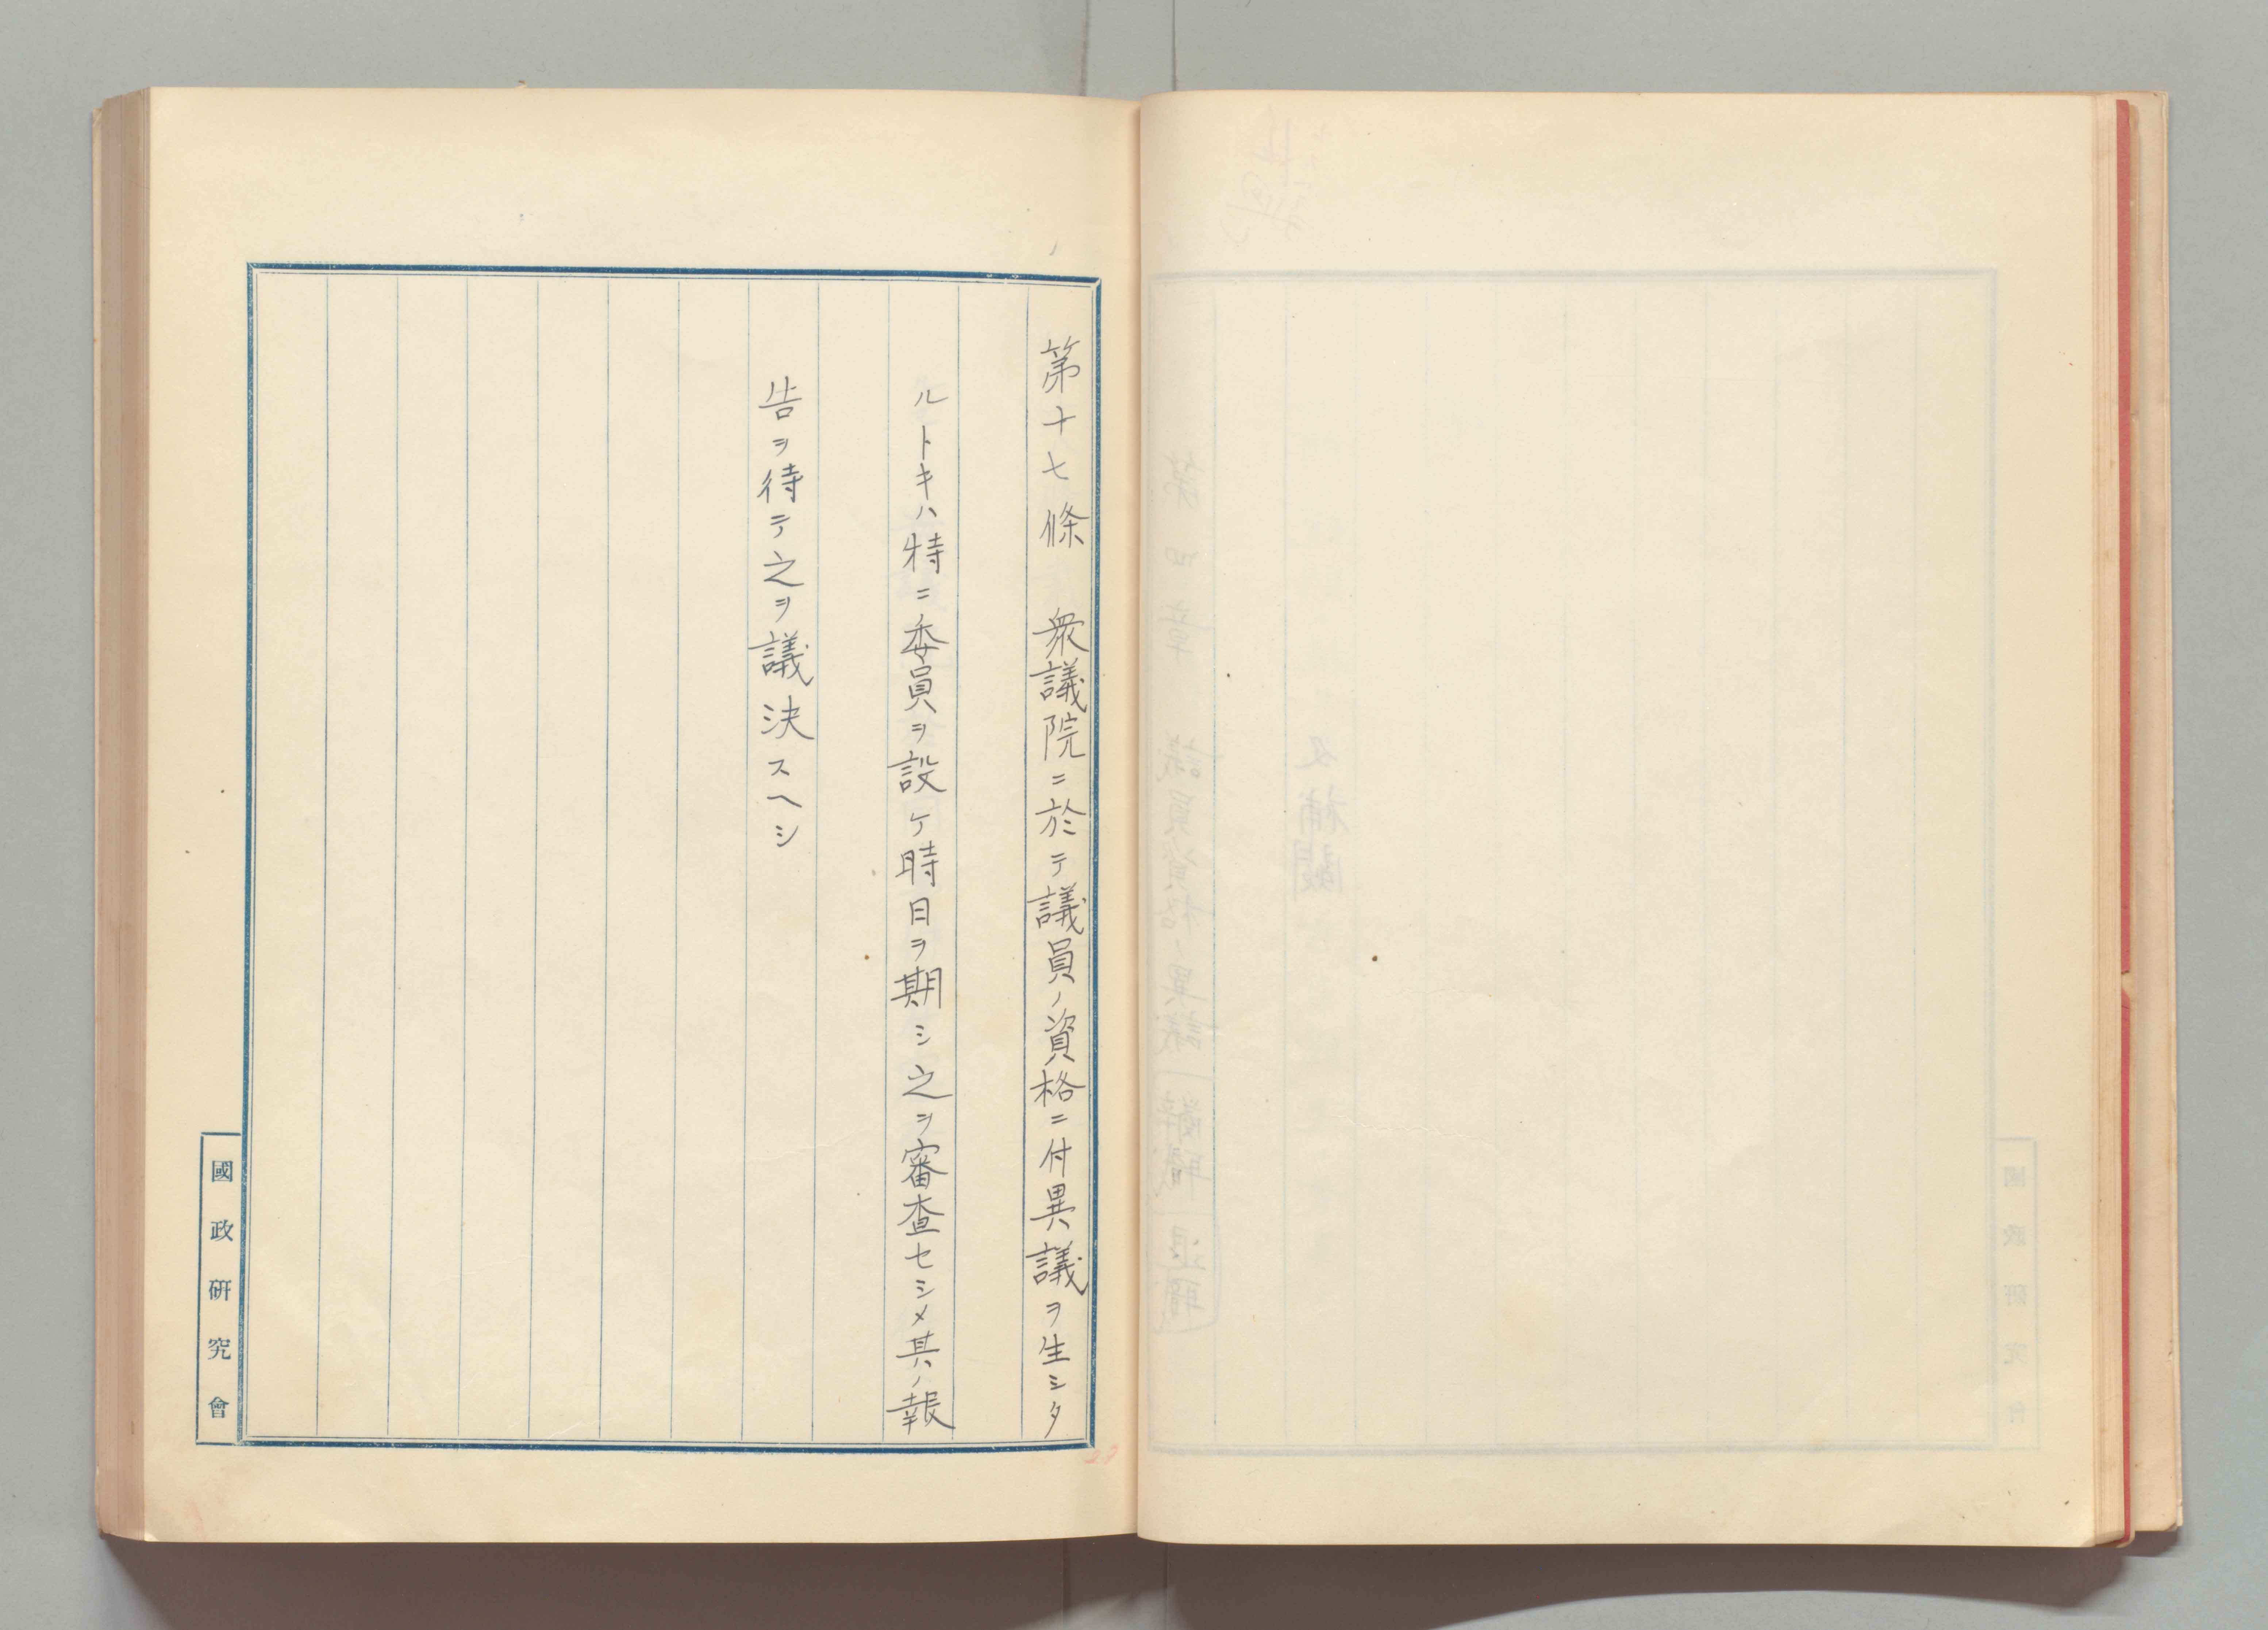 第十七條 衆議院ニ於テ議員ノ資格ニ付異議ヲ生シタ
ルトキハ特ニ委員ヲ設ケ時日ヲ期シ之ヲ審査セシメ其ノ報
告ヲ待テ之ヲ議決スヘシ
國政研究會